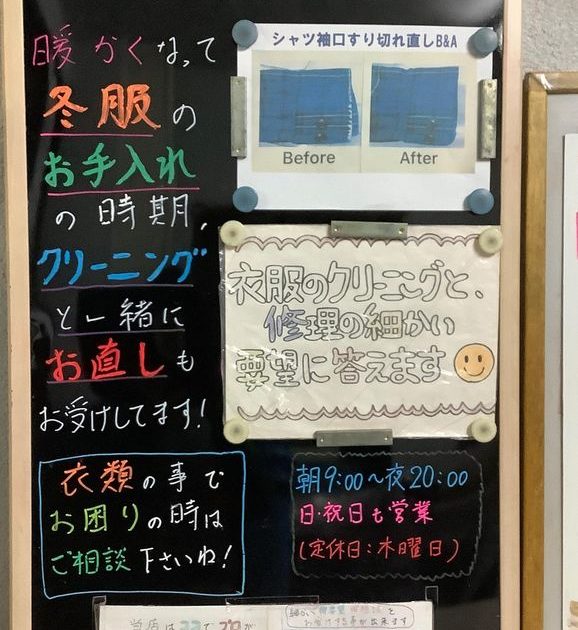 暖かくなって
冬服の
お手入れ
の時期、
クリーニング
と一緒に
お直しも
お受けしてます!
衣類の事で
お困りの時は
ご相談下さいね!
シャツ袖口すり切れ直しB&A
Before
After
衣服のクリーニングと、
修理の細かい
要望に答えます
朝9:00~夜20:00
日・祝日も営業
(定休日:木曜日)